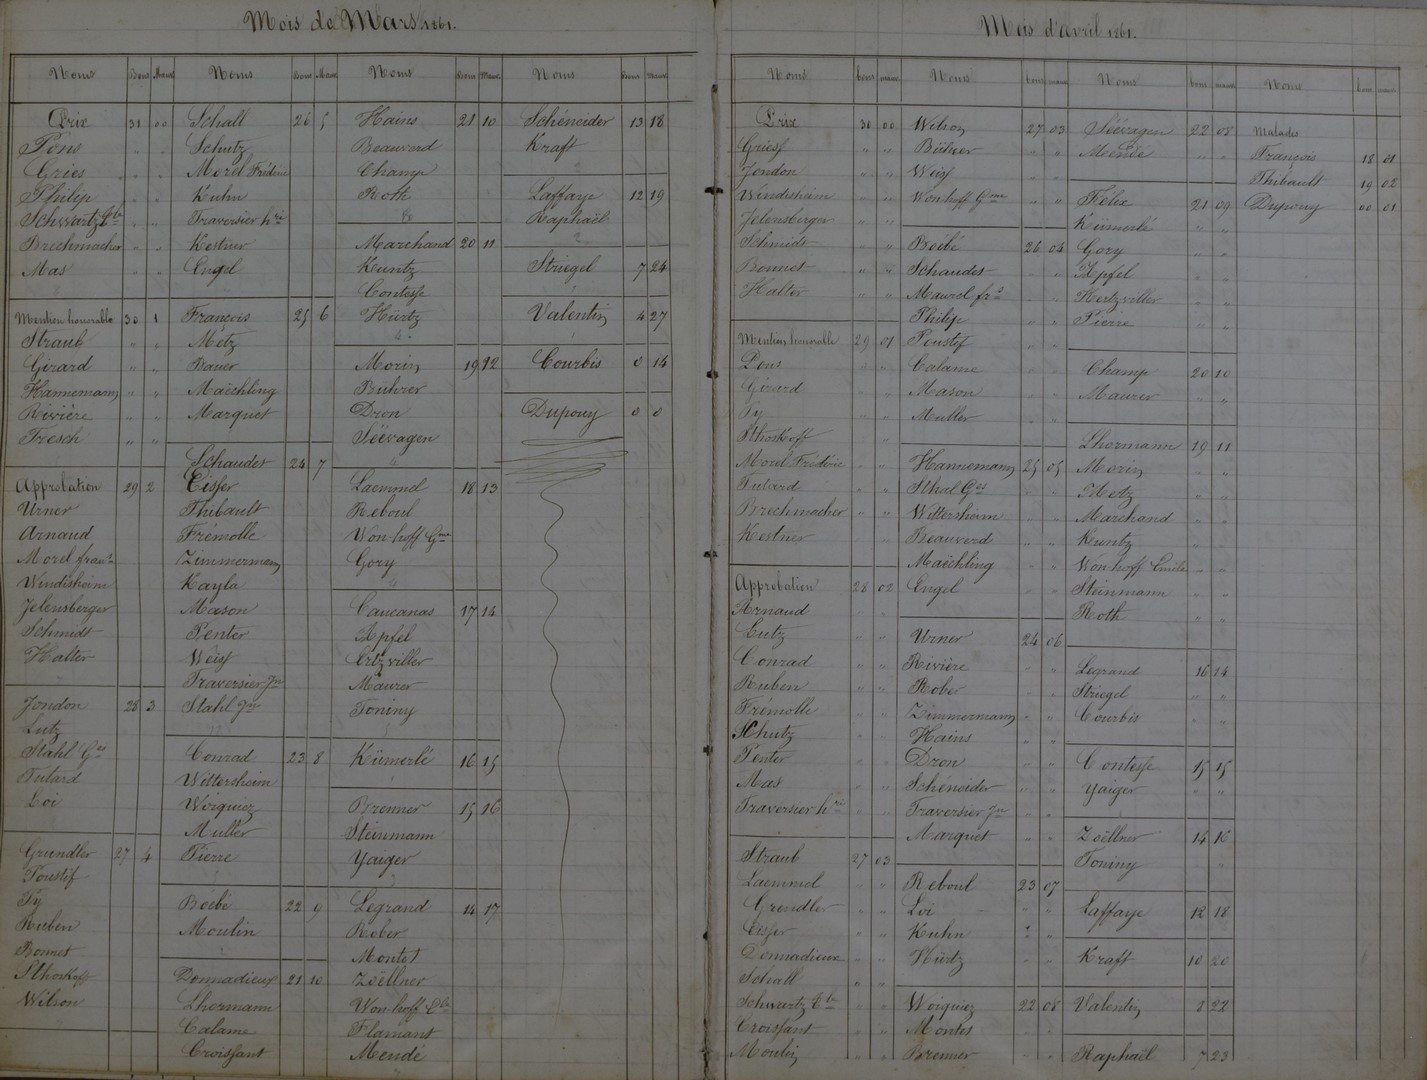 Mois de Mars 1861.
Noms Bons Mauv
Prix 31 00
Pons " "
Gries " "
Philip " "
Schwartz " "
Brechmacher " "
Mas " "
Mention honorable 30 1
Straub " "
Girard " "
Hannemann " "
Rivière " "
Fresch " "
Approbation 29 2
Urner
Arnaud
Morel
Windisheim
Jelensberger
Schmidt
Halter
Jondon 28 3
Lutz
Stahl Ges
Tulard
Loi
Grundler 27 4
Poustif
Fy
Ruben
Bonnet
Sthoskopf
Wilson
Noms Bons Mauv
Schall 26 5
Schutz
Morel Frédéric
Kuhn
Traversier hri
Kestner
Engel
François 25 6
Metz
Bauer
Maëchling
Marquet
Schaudet 24 7
Eisser
Thibault
Frémolle
Zimmermann
Kayla
Mason
Penter
Weiss
Traversier Jne
Stahl Jne
Conrad 23 8
Wittersheim
Woiquiez
Muller
Pierre
Boëbé 22 9
Moulin
Donnadieux 21 10
Lhermann
Calame
Croissant
Noms Bons Mauv
Hains 21 10
Beauverd
Champ
Roth
Marchand 20 11
Kuntz
Contesse
Hürtz
Morin 19 12
Buhrer
Dron
Séévagen
Laemmel 18 13
Reboul
Won-hoff Gme
Gory
Caucanas 17 14
Apfel
Ertzviller
Maurer
Toniny
Kümerlé 16 15
Brenner 15 16
Steinmann
Yaiger
Legrand 14 17
Rober
Montet
Zoëllner
Won-hoff
Flamant
Mendé
Noms Bons Mauv
Schéneider 13 18
Kraft
Laffaye 12 19
Raphaël
Striegel 7 24
Valentin 4 27
Courbis 0 14
Dupouy 0 0
Mois d'avril 1861.
Noms bons mauv
Prix 30 00
Griess " "
Jondon " "
Windisheim " "
Jelensberger " "
Schmidt " "
Bonnet " "
Halter " "
Mention honorable 29 01
Pons " "
Gérard " "
Fy " "
Sthoskopff "
Morel Frédéric " "
Tulard " "
Brechmacher " "
Kestner " "
Approbation 28 02
Arnaud " "
Lutz " "
Conrad " "
Ruben " "
Frémolle " "
Schutz " "
Penter " "
Mas " "
Traversier hri " "
Straub 27 03
Laemmel " "
Grendler " "
Eisser " "
Donnadieux " "
Schall " "
Schwartz " "
Croissant " "
Moulin " "
Noms bons mauv
Wilson 27 03
Bühner " "
Weiss " "
Won-hoff Gme " "
Boëbé 26 04
Schaudet " "
Maurel " "
Philip " "
Poustif " "
Calame " "
Mason " "
Muller " "
Hannemann 25 05
Sthal Ges " "
Wittersheim " "
Beauverd " "
Maëchling " "
Engel " "
Urner 24 06
Rivière " "
Rober " "
Zimmermann " "
Hains " "
Dron " "
Schéneider " "
Traversier Jne " "
Marquet " "
Reboul 23 07
Loi " "
Kuhn " "
Hürtz " "
Woiquiez 22 08
Montet " "
Brenner " "
Noms bons mauv
Séévagen 22 08
Mendé " "
Félix 21 09
Kümerlé " "
Gory " "
Apfel " "
Hertzviller " "
Pierre " "
Champ 20 10
Maurer " "
Lhormann 19 11
Morin "
Metz "
Marchand " "
Kuntz " "
Won-hoff Emile " "
Steinmann " "
Roth " "
Legrand 16 14
Striegel " "
Courbis " "
Contesse 15 15
Yaiger " "
Zoëllner 14 16
Toniny " "
Laffaye 12 18
Kraft 10 20
Valentin 8 22
Raphaël 7 23
Noms bons mauv
Malades
François 18 01
Thibault 19 02
Dupouy 00 01